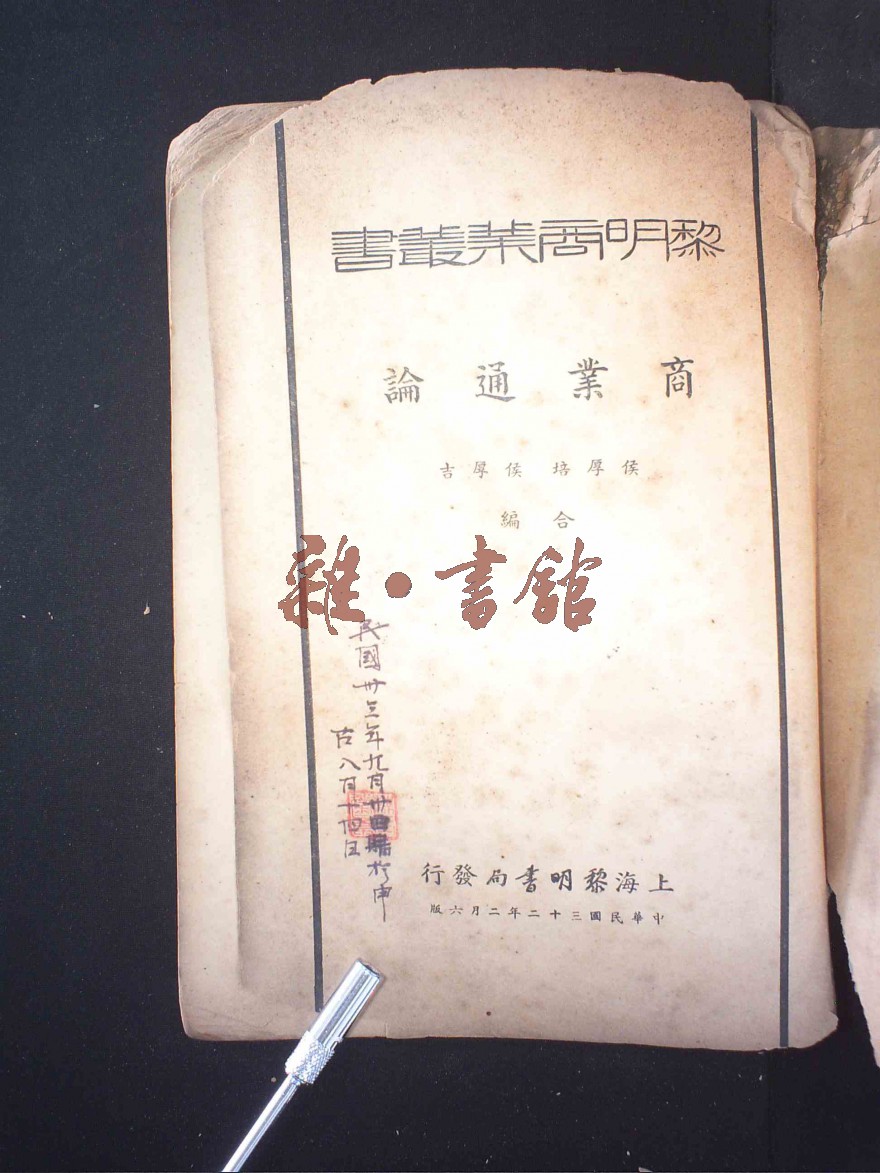 黎明商業叢書
商業通論
侯厚培 侯厚吉
合編
雜·書館
民國卅三年九月廿四購於申
古八月十四日
上海黎明書局發行
中華民國三十二年二月六版